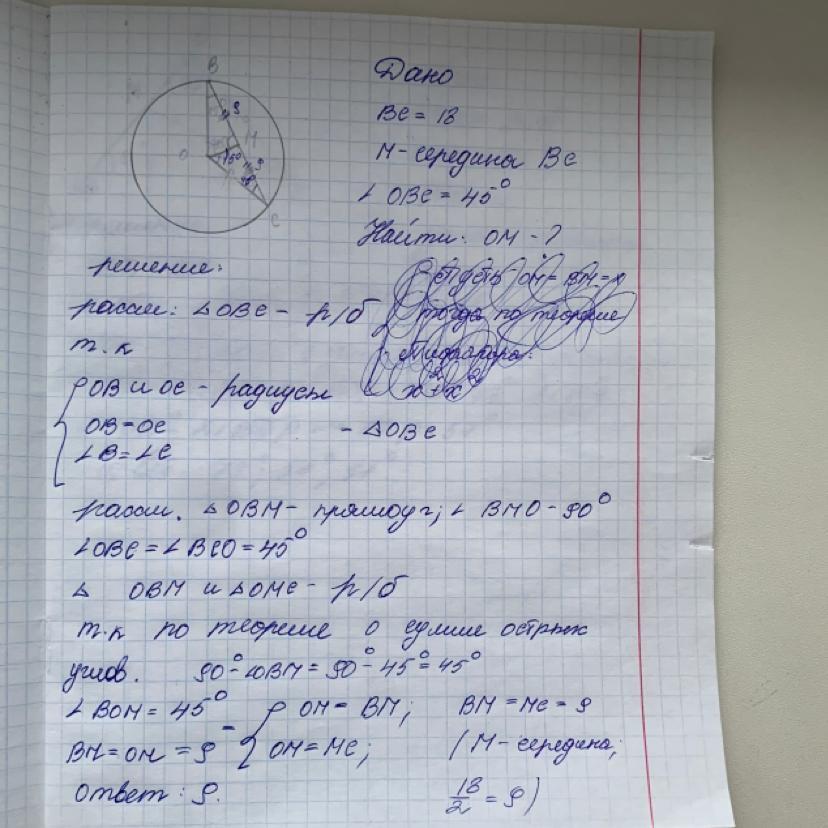 Дано
BC = 18
M - середина BC
∠ OBC = 45°
Найти: OM - ?
решение:
рассм: △OBC - р/б
т.к
OB и OC - радиусы
OB = OC - △OBC
∠B = ∠C
рассм. △OBM - прямоуг; ∠ BMO - 90°
∠OBC = ∠BCO = 45°
△ OBM и △OMC - р/б
т.к по теореме о сумме острых
углов. 90° - ∠OBM = 90° - 45° = 45°
∠ BOM = 45° OM = BM; BM = MC = 9
BM = OM = 9 OM = MC; (M - середина;
Ответ: 9. 18/2 = 9)
B
9
M
O
45°
9
C